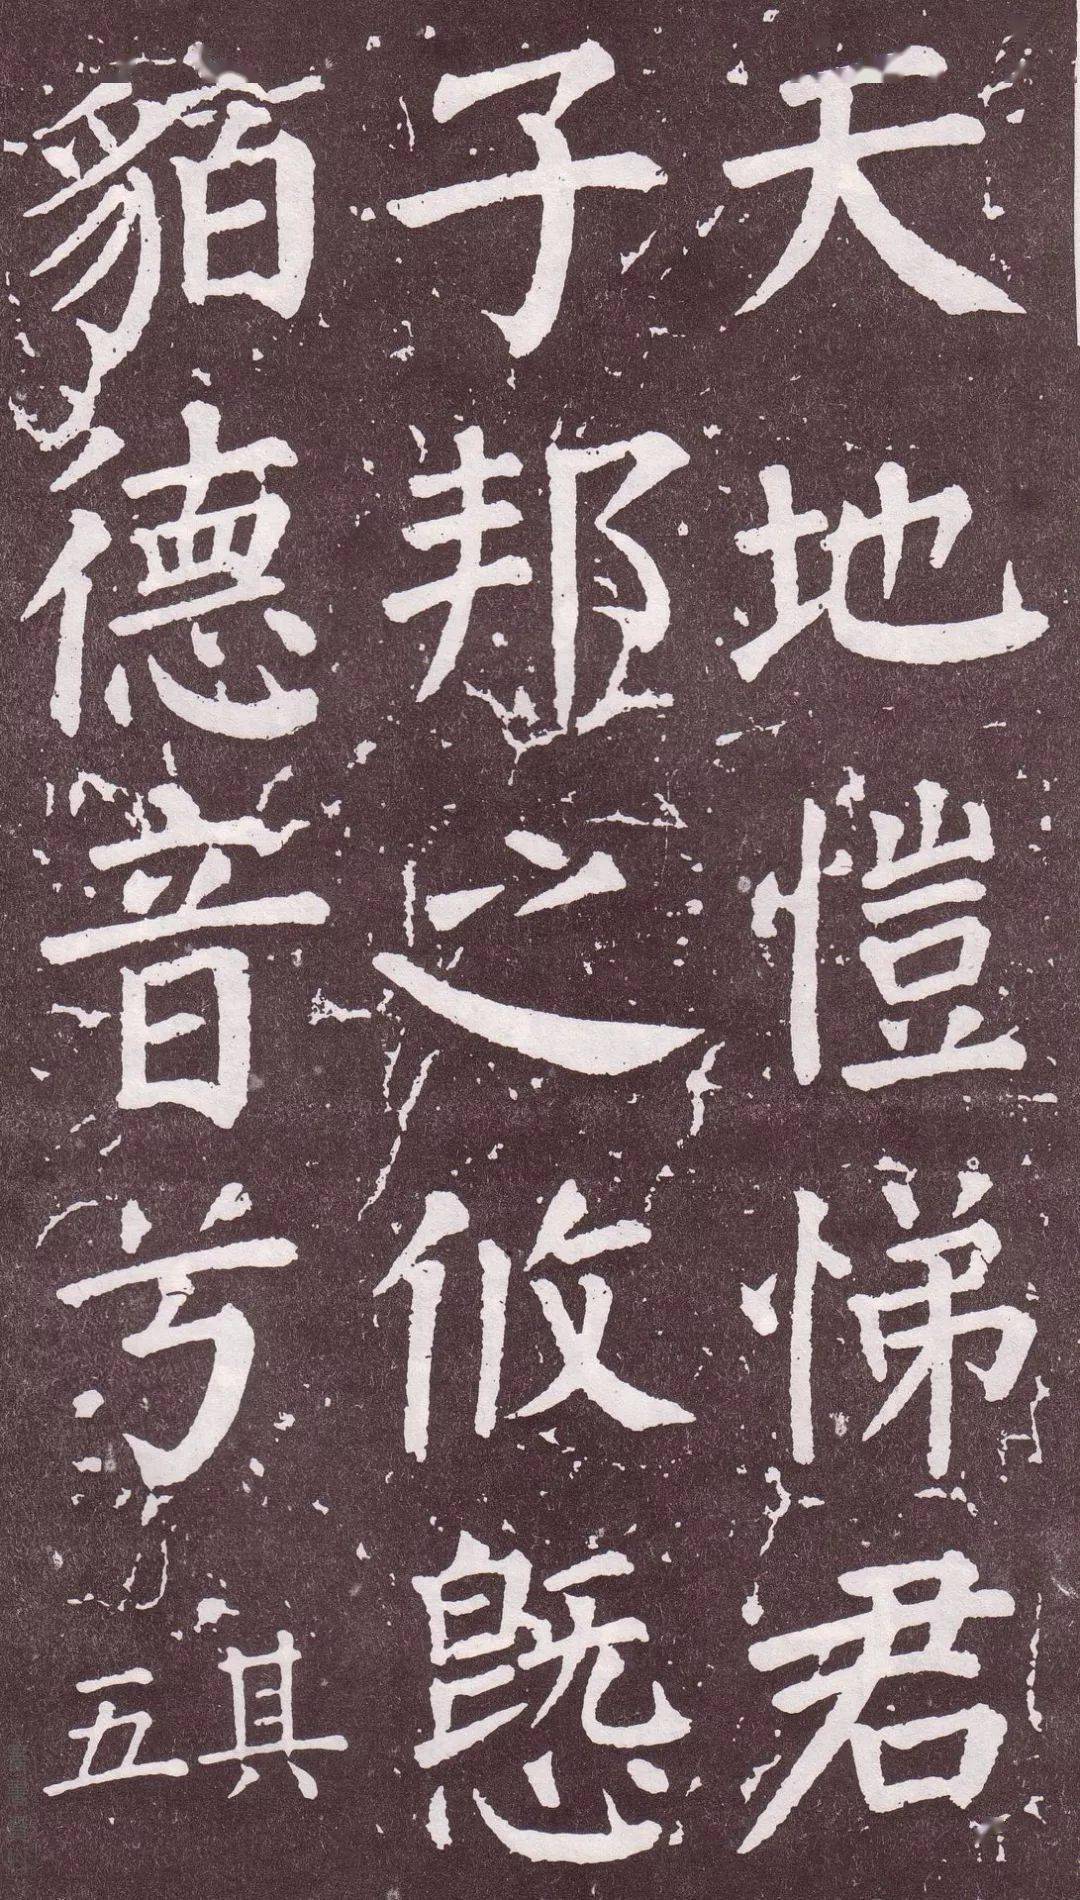 天地愷悌君
子邦之攸塈
貊德音兮其五